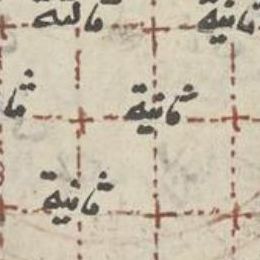 ثانية ثانية
ثانية
ثانية